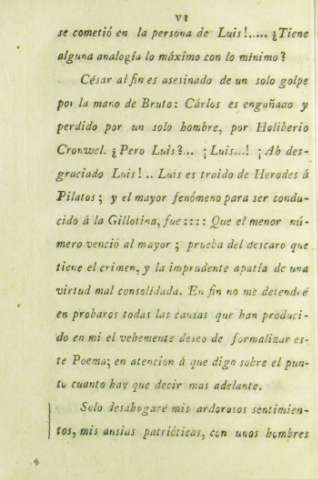 VI
se cometió en la persona de Luis!..... ¿Tiene
alguna analogía lo máximo con lo mínimo?
César al fin es asesinado de un solo golpe
por la mano de Bruto: Cárlos es engañado y
perdido por un solo hombre, por Holiberio
Cronwel. ¿Pero Luis?... ¡Luis...! ¡Ah des-
graciado Luis!.. Luis es traido de Herodes á
Pilatos; y el mayor fenómeno para ser condu-
cido á la Gillotina, fue:::: Que el menor nú-
mero venció al mayor; prueba del descaro que
tiene el crimen, y la imprudente apatía de una
virtud mal consolidada. En fin no me detendré
en probaros todas las causas que han produci-
do en mi el vehemente deseo de formalizar es-
te Poema; en atencion á que digo sobre el pun-
to cuanto hay que decir mas adelante.
Solo desahogaré mis ardorosos sentimien-
tos, mis ansias patrióticas, con unos hombres